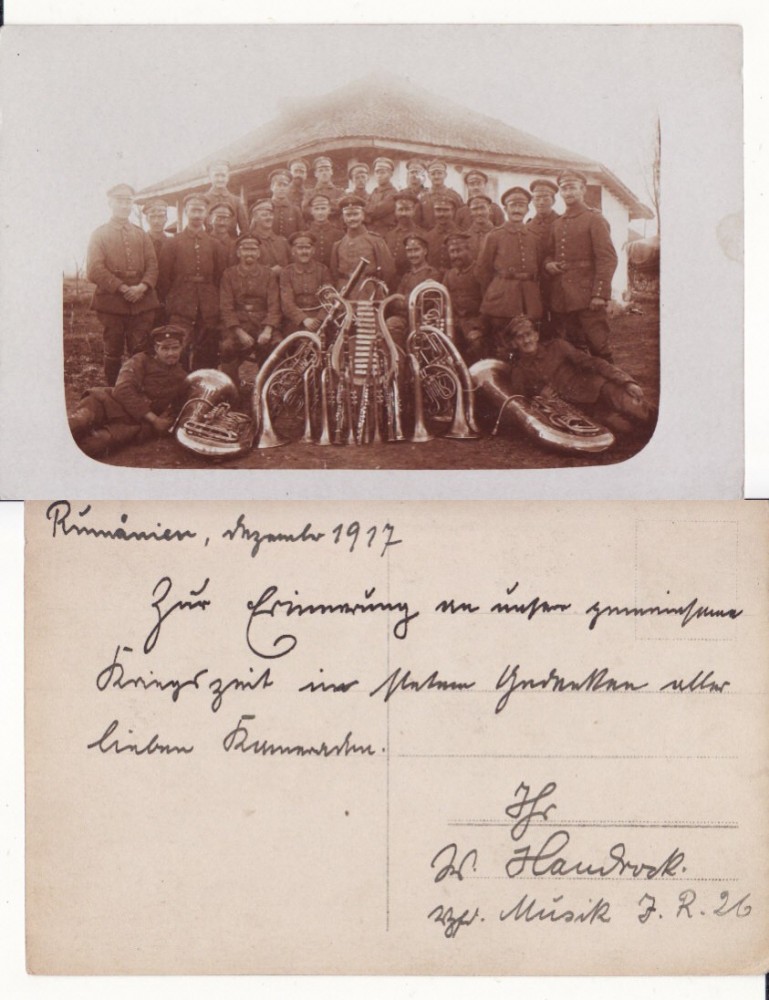 Rumänien, Dezember 1917
Zur Erinnerung an unsere gemeinsame
Kriegszeit im stetem Gedenken aller
lieben Kameraden.
Ihr
W. Handrock.
Vzf. Musik J. R. 26